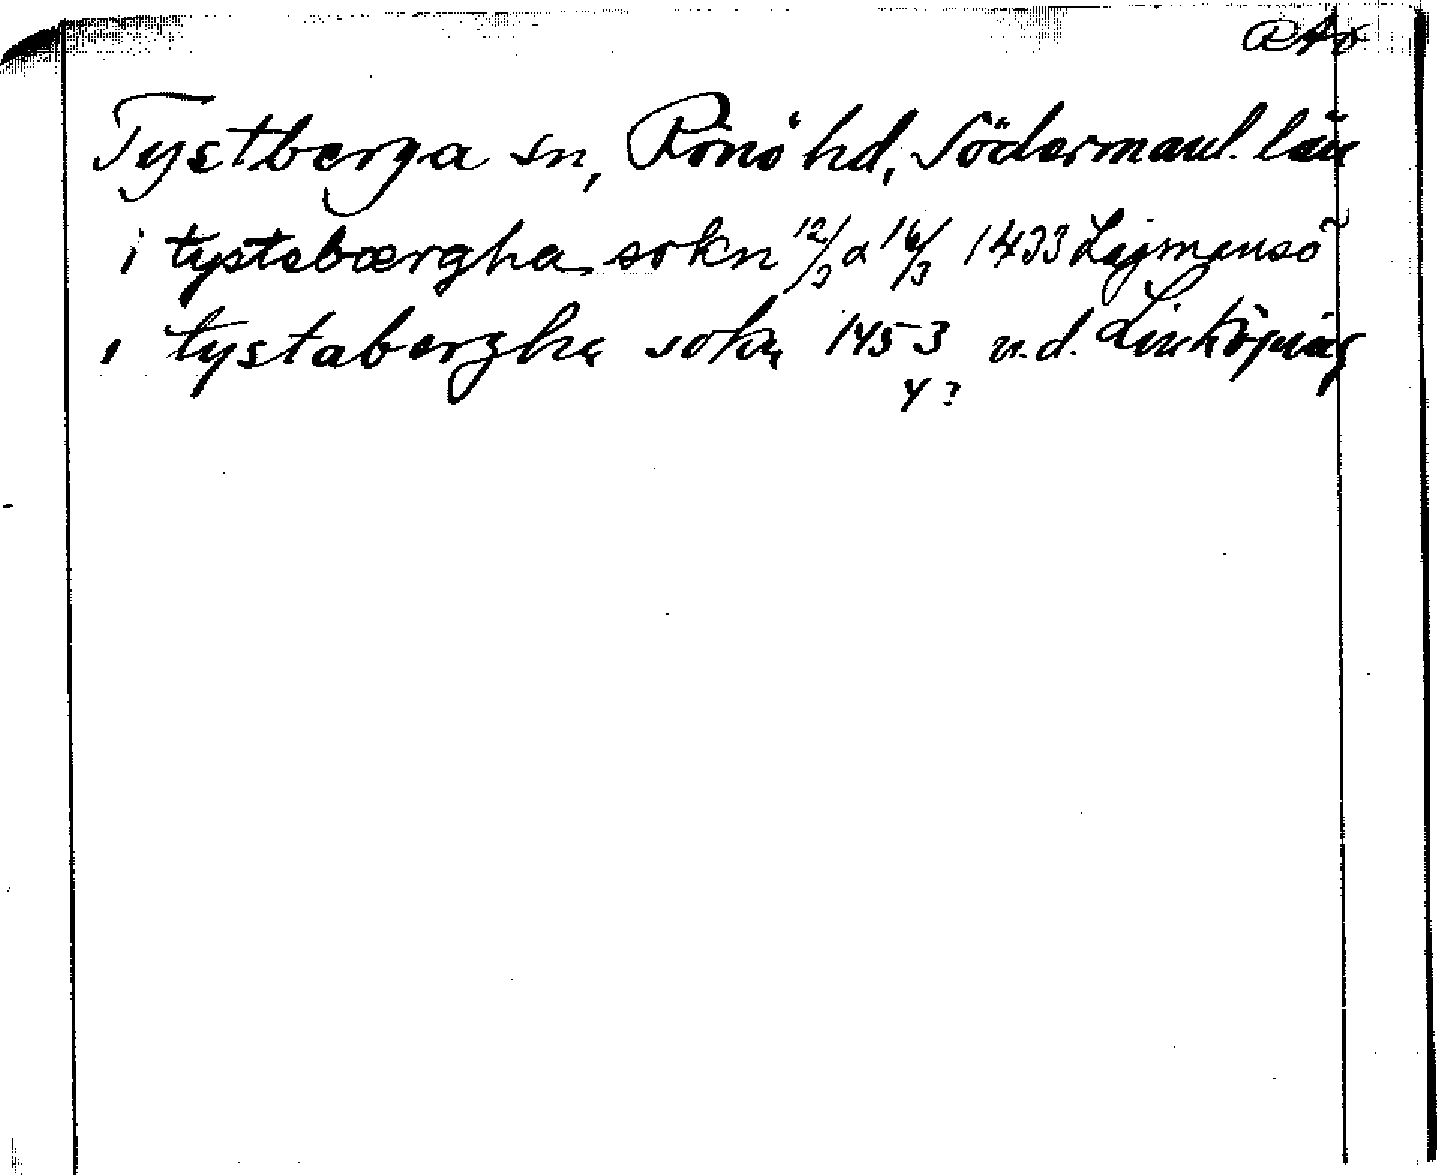 Tystberga sn, Rönö hd, Södermanl. län
i tystebærgha sokn 12/3 o 16/3 1433 Lagmansö
i tystaberghe sokn 1453 u.d. Linköping
4?